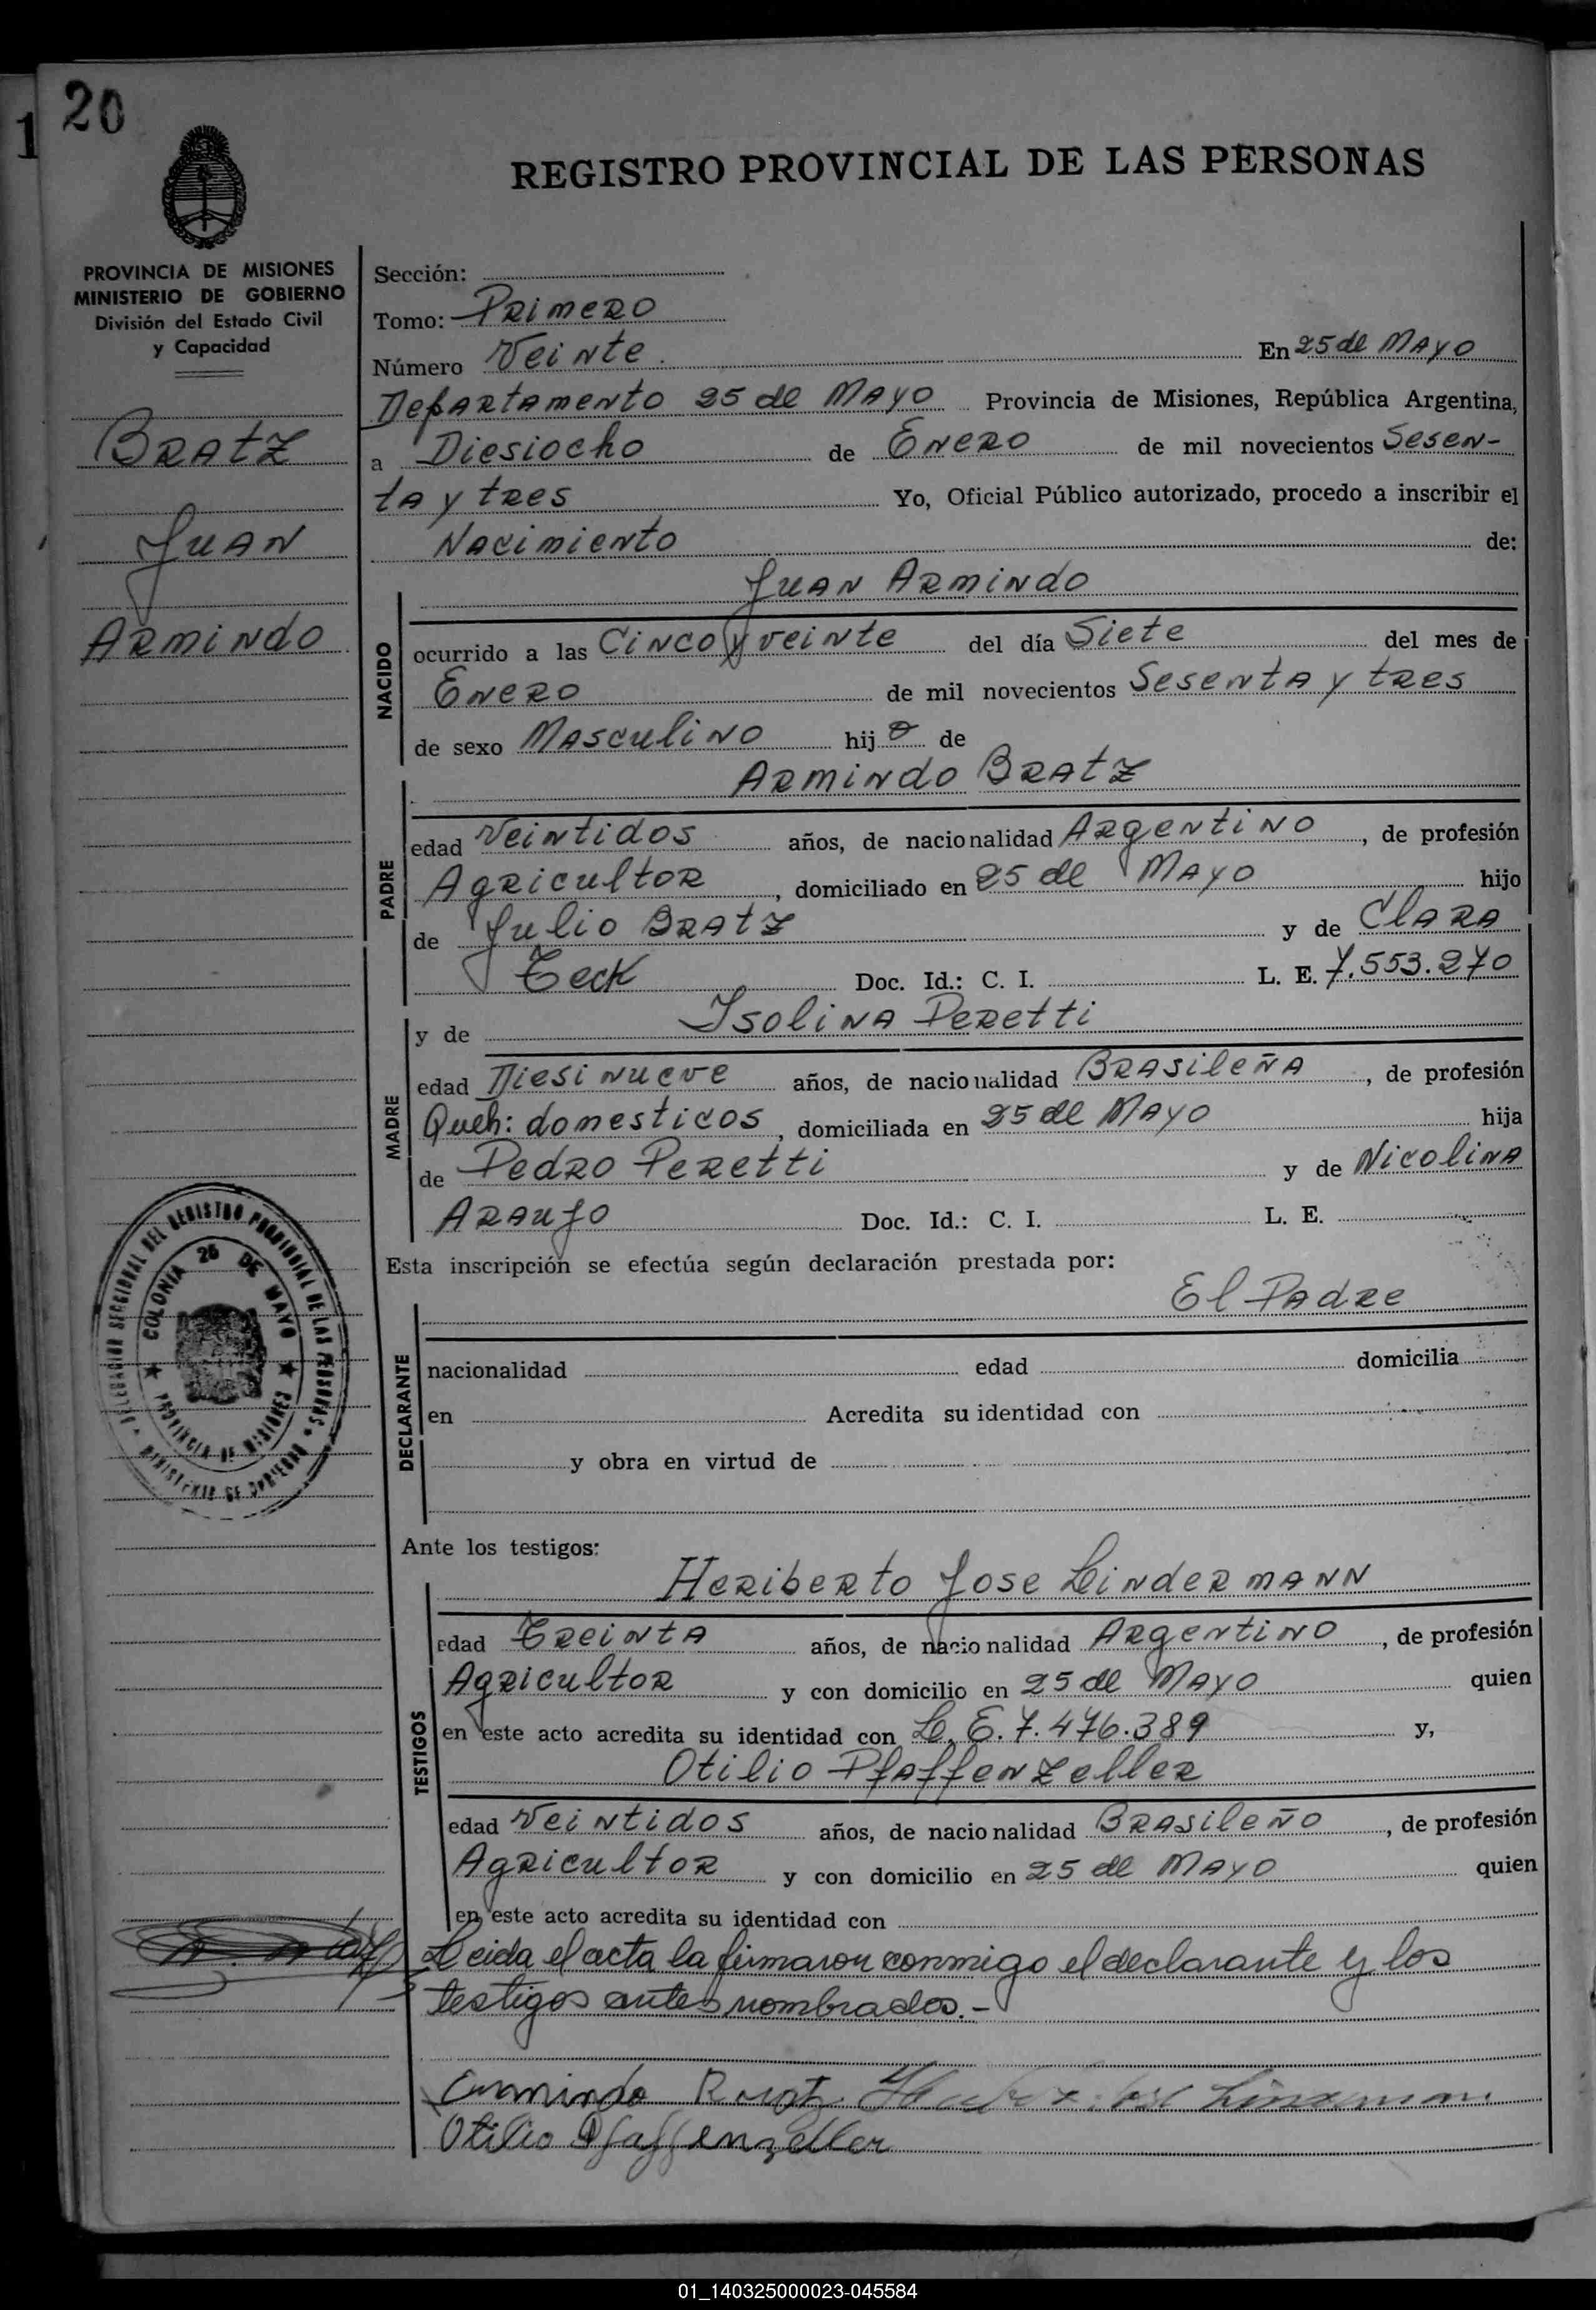 20
1
REGISTRO PROVINCIAL DE LAS PERSONAS
PROVINCIA DE MISIONES
MINISTERIO DE GOBIERNO
División del Estado Civil
y Capacidad
BRATZ
JUAN
ARMINDO
Sección:
Tomo: PRIMERO
Número Veinte. En 25 de MAYO
DepARtAmento 25 de MAYO Provincia de Misiones, República Argentina,
a Diesiocho de ENERO de mil novecientos Sesen-
tA y tRes Yo, Oficial Público autorizado, procedo a inscribir el
NAcimiento de:
JUAN ARMINDO
NACIDO
ocurrido a las CINCO y veinte del día Siete del mes de
ENERO de mil novecientos SesentA y tRes
de sexo MAsculino hijo de
ARMINDO BRATZ
PADRE
edad Veintidos años, de nacionalidad ARgentino, de profesión
AgRicultoR, domiciliado en 25 de MAYO hijo
de Julio BRATZ y de ClARA
Teck Doc. Id.: C. I. L. E. 7.553.270
MADRE
y de IsoliNA PeRetti
edad Diesinueve años, de nacionalidad BRAsileñA, de profesión
Queh: domesticos, domiciliada en 25 de MAYO hija
de PedRo PeRetti y de NicoliNA
ARAUJO Doc. Id.: C. I. L. E.
Esta inscripción se efectúa según declaración prestada por:
El PAdRe
DECLARANTE
nacionalidad edad domicilia
en Acredita su identidad con
y obra en virtud de
DELEGACION SECCIONAL DEL REGISTRO PROVINCIAL DE LAS PERSONAS
MINISTERIO DE GOBIERNO
COLONIA 25 DE MAYO
PROVINCIA DE MISIONES
Ante los testigos:
HeRibeRto Jose LindeRmANN
TESTIGOS
edad TReintA años, de nacionalidad ARgentino, de profesión
AgRicultoR y con domicilio en 25 de MAYO quien
en este acto acredita su identidad con L. E. 7.476.389 y,
Otilio PfAffenzelleR
edad Veintidos años, de nacionalidad BRAsileño, de profesión
AgRicultoR y con domicilio en 25 de MAYO quien
en este acto acredita su identidad con
Leida el acta la firmaron conmigo el declarante y los
testigos antes nombrados.-
Armindo Bratz
Otilio Pfaffenzeller
01_140325000023-045584